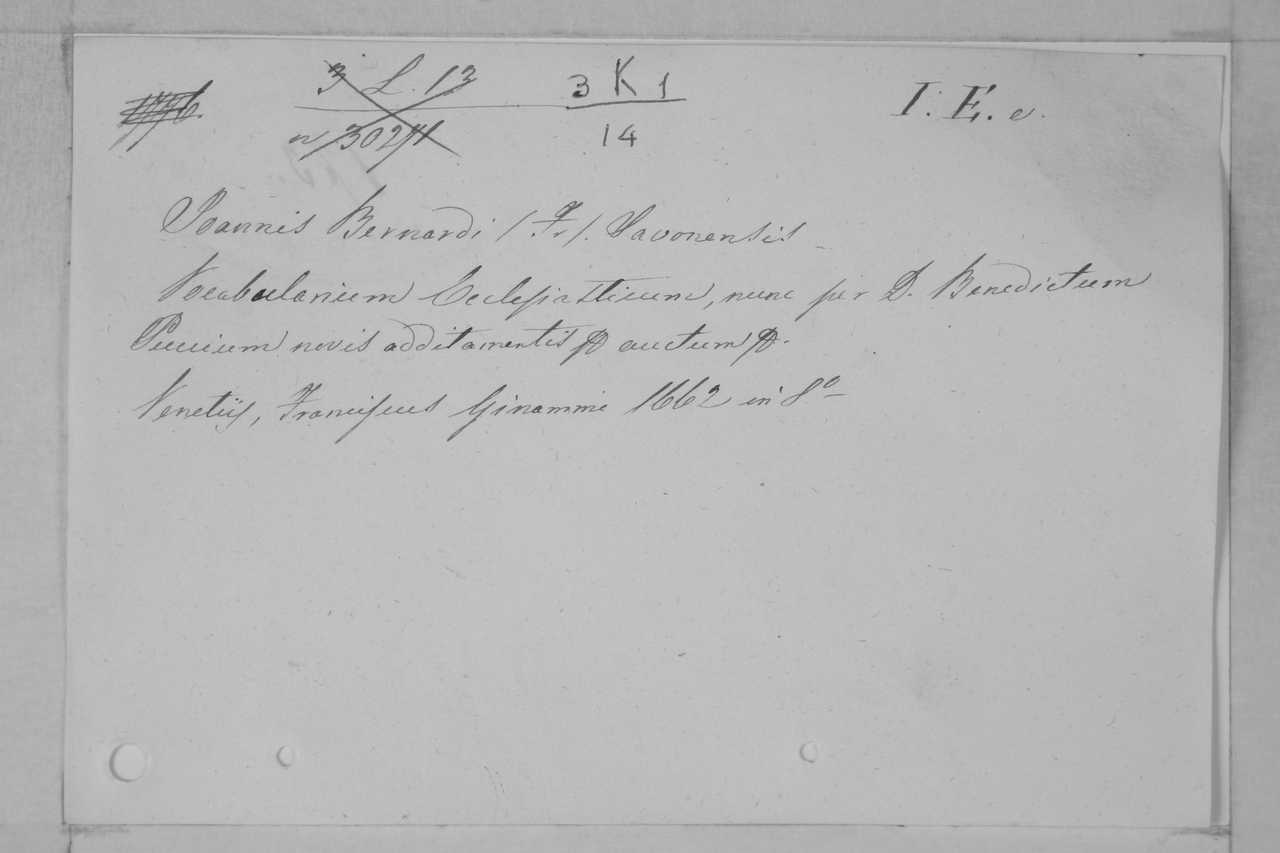 3 L. 13 3 K 1 I. E. e.
n 30271 14
Joannis Bernardi /Fr/. Savonensis
Vocabularium Ecclesiasticum, nunc per D. Benedictum
Puccium novis additamentis auctum
Venetijs, Franciscus Ginammi 1662 in 8º